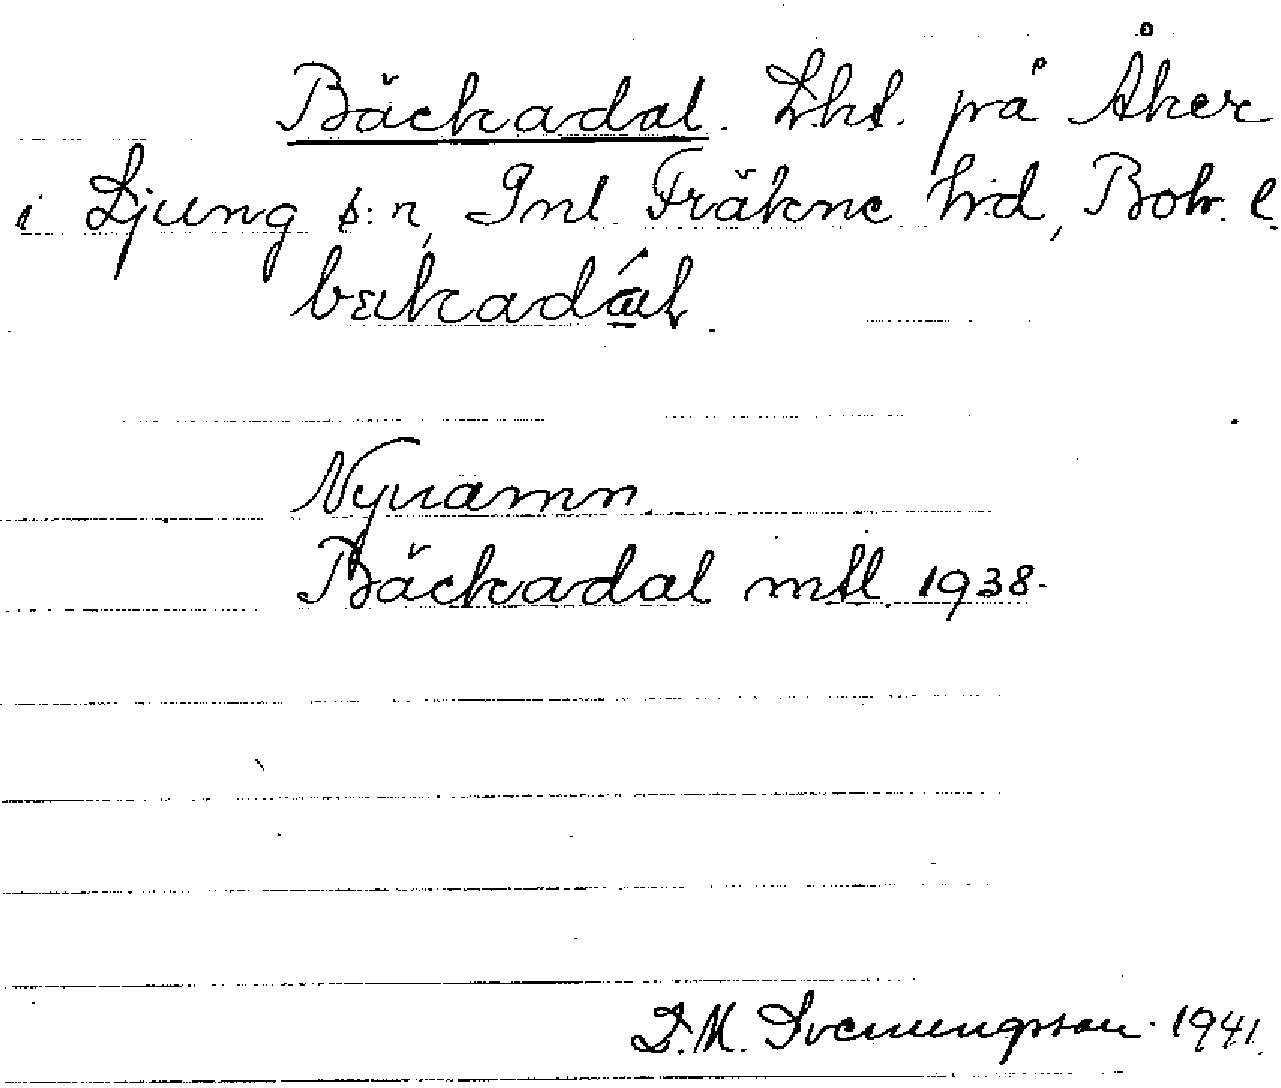 Bäckadal. Lht. på Åker
i Ljung s:n, Inl. Fräkne hd, Boh. l.
Nynamn.
Bäckadal mtl. 1938.
D.M. Svenungsson. 1941.